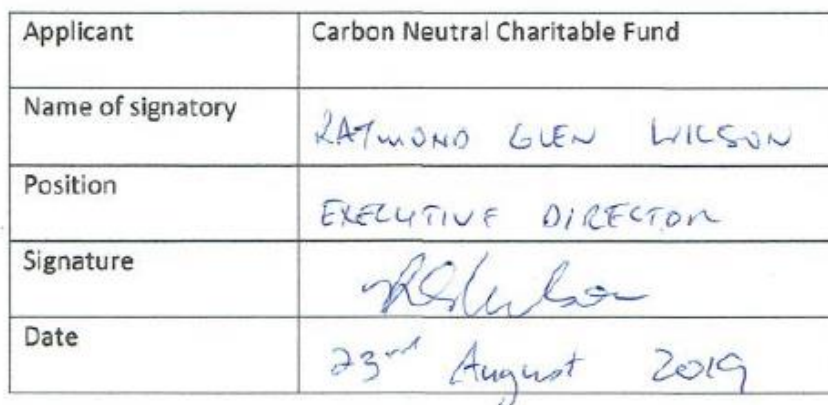 Applicant Carbon Neutral Charitable Fund
Name of signatory RAYMOND GLEN WILSON
Position EXECUTIVE DIRECTOR
Signature RGWilson
Date 23rd August 2019